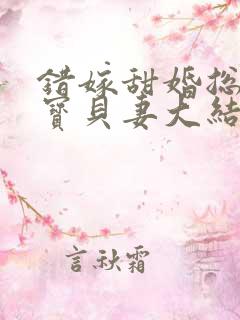 錯嫁甜婚总
寶貝妻大結
言秋霜